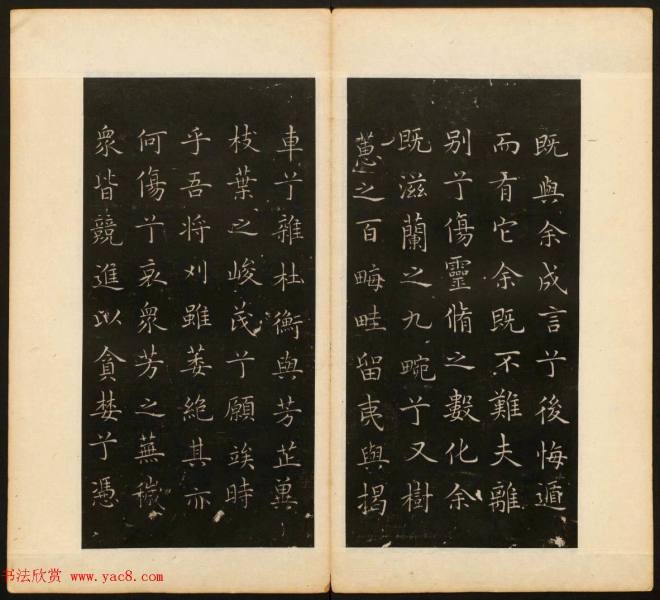 既與余成言兮後悔遁
而有它余既不難夫離
別兮傷靈脩之數化余
既滋蘭之九畹兮又樹
蕙之百畮畦留夷與揭
車兮雜杜衡與芳芷冀
枝葉之峻茂兮願竢時
乎吾将刈雖萎絶其亦
何傷兮哀衆芳之蕪穢
衆皆競進以貪婪兮憑
书法欣赏 www.yac8.com